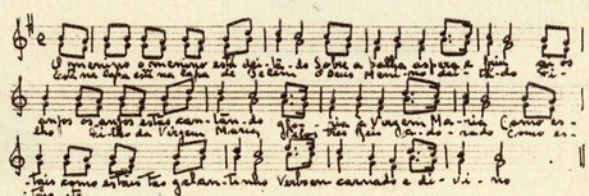 O menino o menino está dei-tá-do Sobre a palha aspera e fria ai os
Está na lapa está na lapa de Belém O Deus Meni-no dei-tá-do Fi-
anjos os anjos estás can-tân-do gló-ria à Virgem Ma-ria Como es-
lho Fi-lho da Virgem Maria, Reis a-do-rado Como es-
tais como estais tão galan-tinho Verbo en carnado e di-vi-no